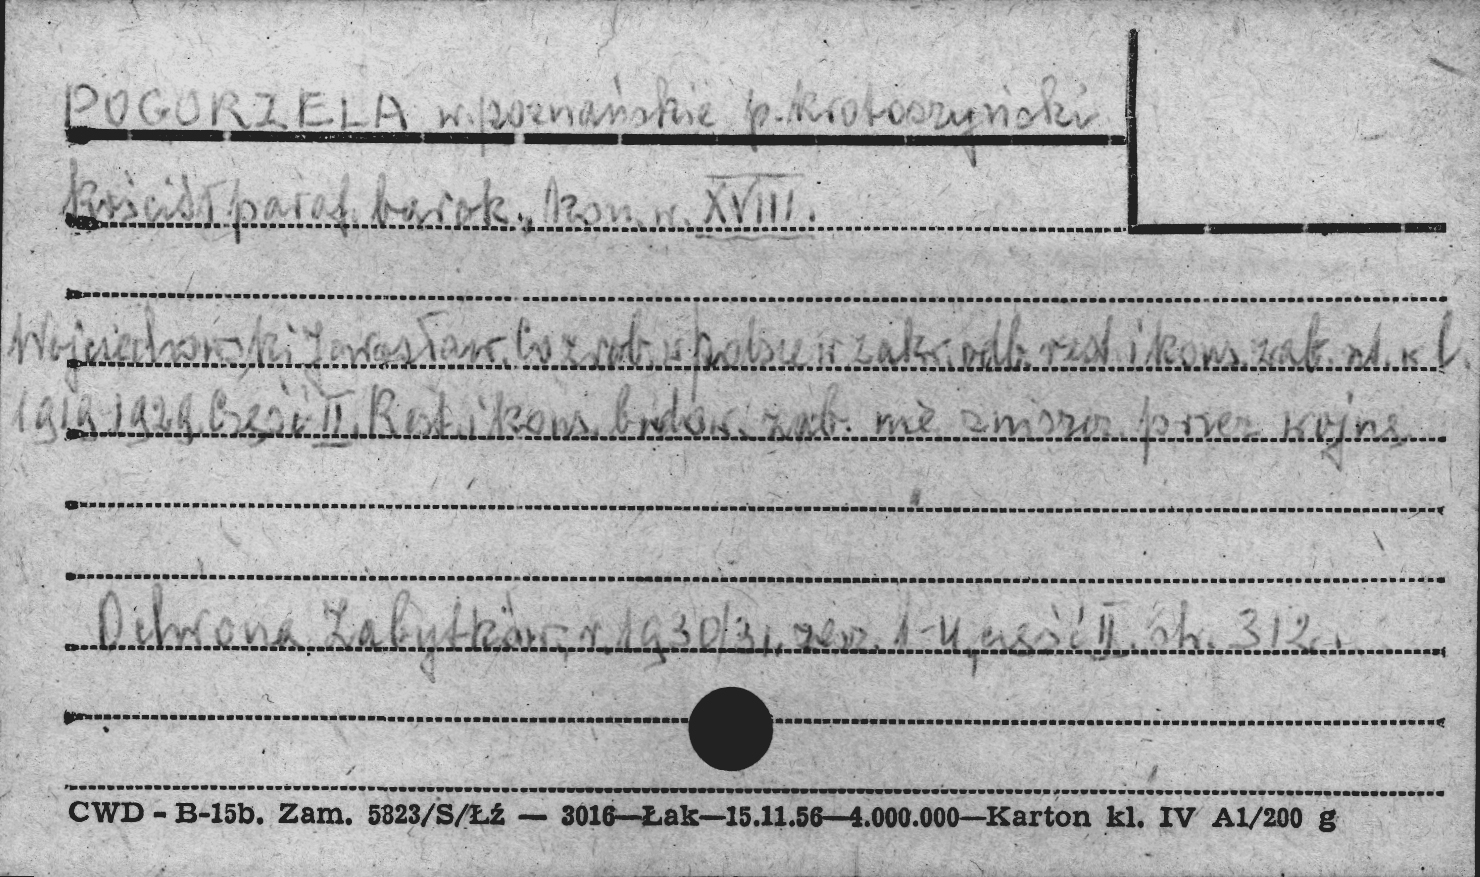 POGORZELA w. poznańskie p. krotoszyński
Kościół paraf. barok., kon. w. XVIII.
Wojciechowski Jarosław. Co zrob. w polsce w zakr. odb. rest. i kons. zab. st. w l.
1919-1929. Część II. Rest. i kons. budow. zab. nie zniszcz. przez wojnę
Ochrona Zabytków, r. 1930/31, zesz. 1-4, część II. str. 312.
CWD - B-15b. Zam. 5823/S/Łź — 3016—Łak—15.11.56—4.000.000—Karton kl. IV A1/200 g